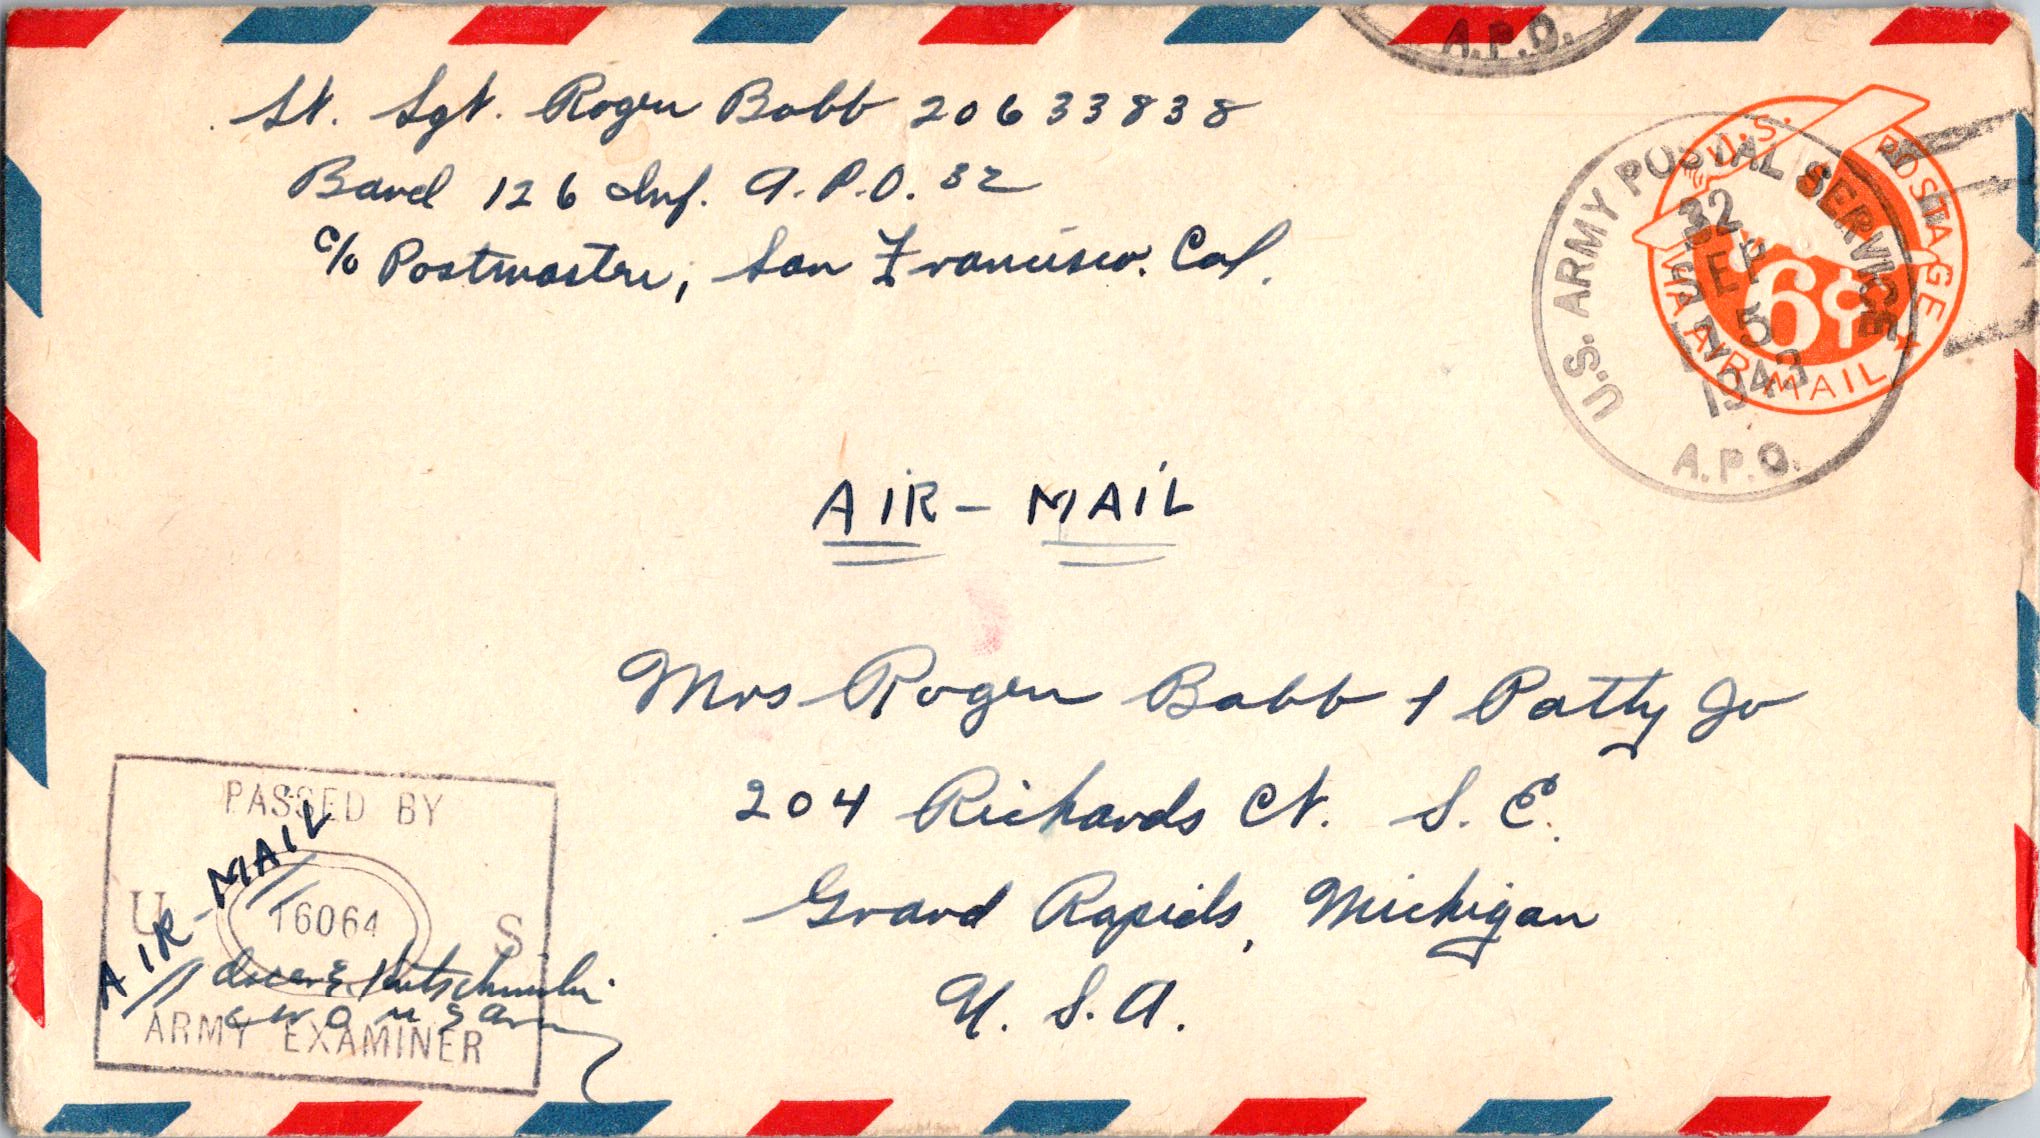 A.P.O.
St. Sgt. Roger Babb 20633838
Band 126 Inf. A.P.O. 32
c/o Postmaster, San Francisco. Cal.
U.S. POSTAGE
6¢
VIA AIR MAIL
U.S. ARMY POSTAL SERVICE
32
SEP
5
1943
A.P.O.
AIR-MAIL
Mrs Roger Babb & Patty Jo
204 Richards Ct. S.E.
Grand Rapids, Michigan
U.S.A.
PASSED BY
U S
16064
ARMY EXAMINER
AIR-MAIL
CWO USArmy